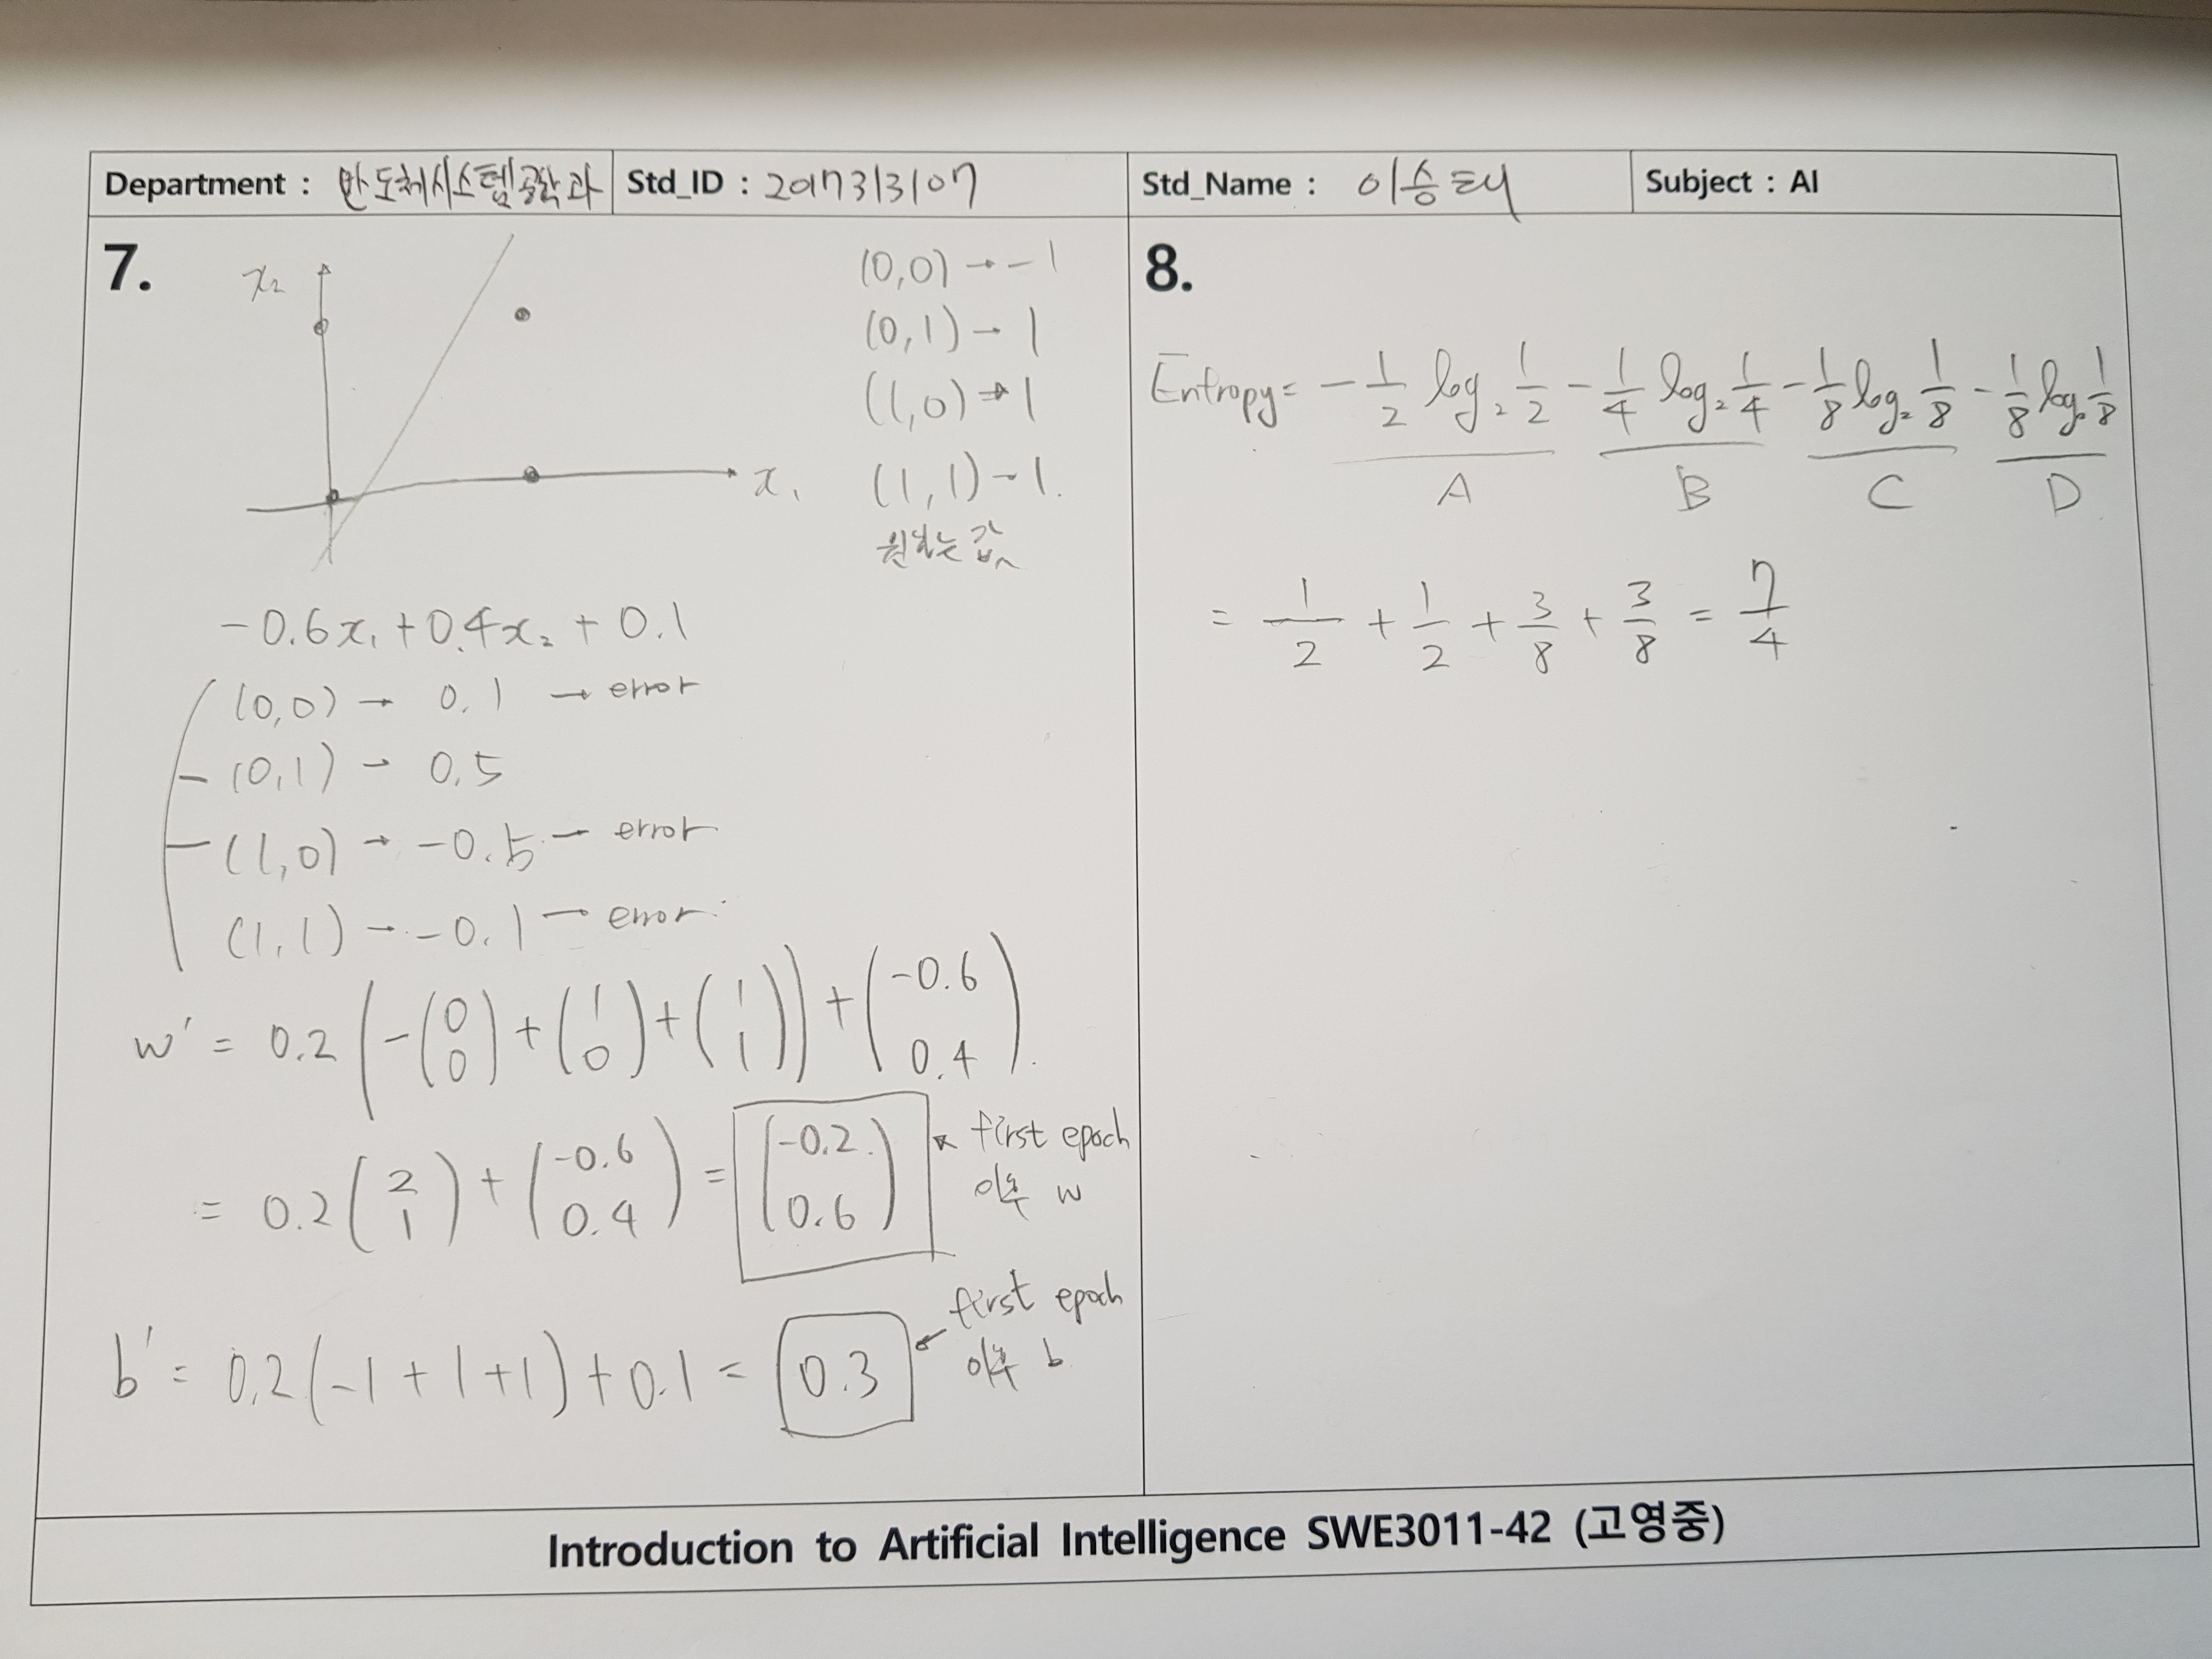 Department : 반도체시스템공학과 Std_ID : 2017313107 Std_Name : 이승근 Subject : AI
7.
x₂
x₁
(0,0) → -1
(0,1) → 1
(1,0) → 1
(1,1) → 1.
원하는 값
-0.6x₁ + 0.4x₂ + 0.1
(0,0) → 0.1 → error
(0,1) → 0.5
(1,0) → -0.5 → error
(1,1) → -0.1 → error.
w' = 0.2 ( -(0 0) + (1 0) + (1 1) ) + (-0.6 0.4).
= 0.2 (2 1) + (-0.6 0.4) = (-0.2 0.6)
first epoch
이후 w
b' = 0.2 (-1 + 1 + 1) + 0.1 = 0.3
first epoch
이후 b
8.
Entropy = -1/2 log₂ 1/2 - 1/4 log₂ 1/4 - 1/8 log₂ 1/8 - 1/8 log₂ 1/8
A B C D
= 1/2 + 1/2 + 3/8 + 3/8 = 7/4
Introduction to Artificial Intelligence SWE3011-42 (고영중)